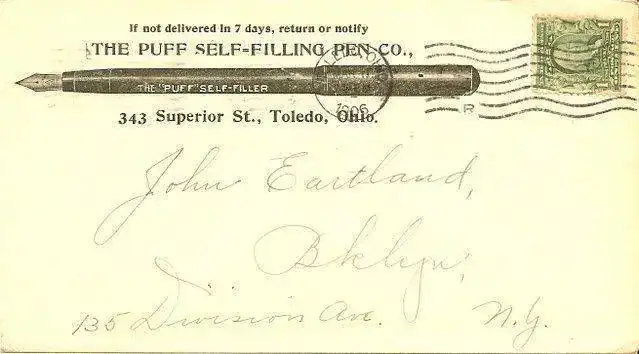 If not delivered in 7 days, return or notify
THE PUFF SELF-FILLING PEN CO.,
THE "PUFF" SELF-FILLER
1906
R
343 Superior St., Toledo, Ohio.
John Eartland,
Bklyn,
135 Division Ave. N.Y.